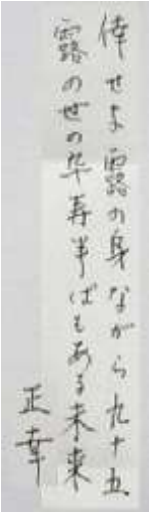 倖せよ露の身ながら九十五
露の世の卒寿半ばもある未来
正幸